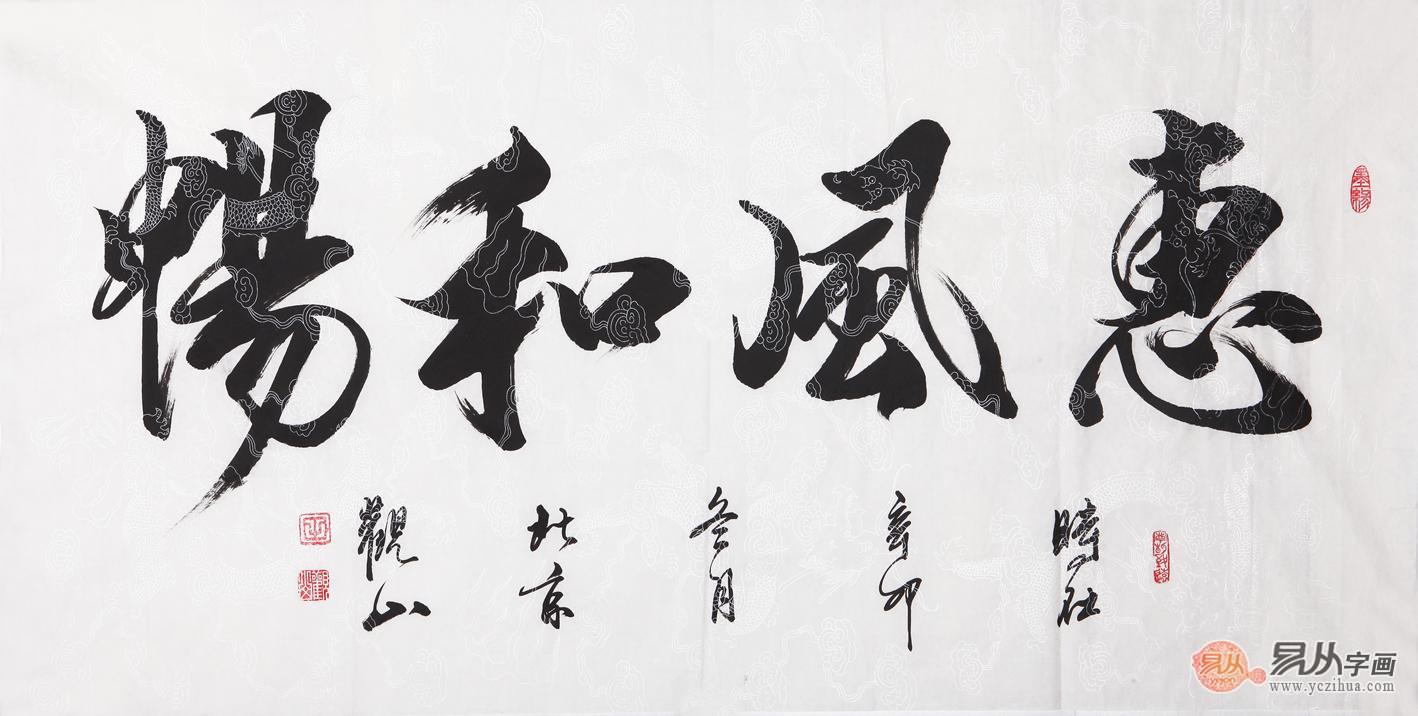 惠風和暢
時在
辛卯
冬月
北京
觀山
墨緣
易从
易从字画
www.yczihua.com